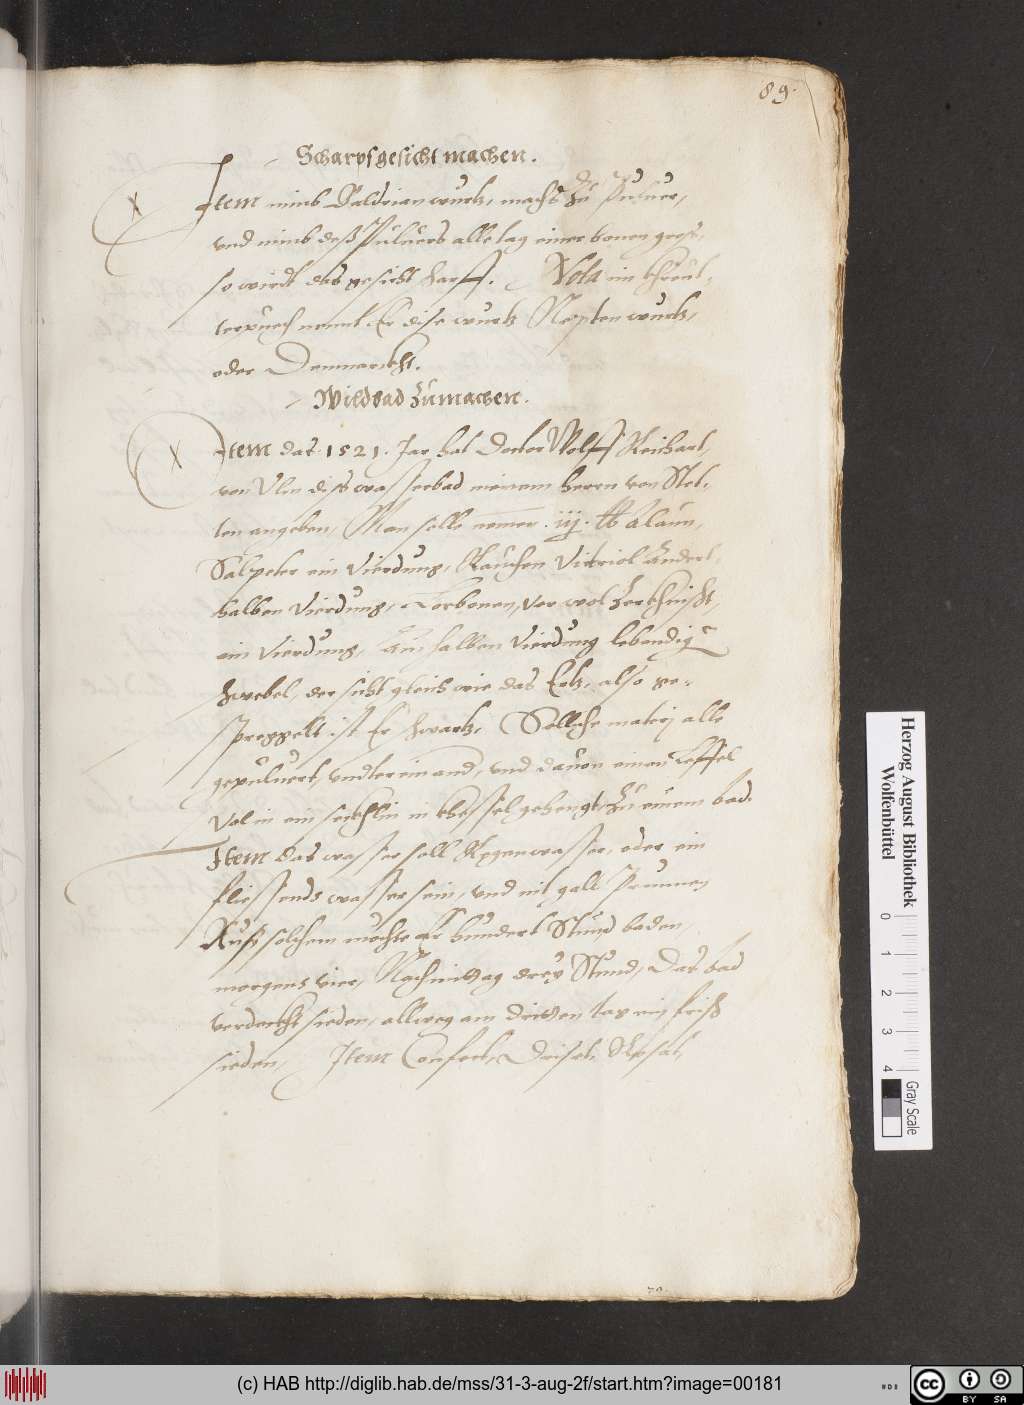 89.
Scharpf gesicht machen.
Item nimb Baldrian wurtz, machs zu Puluer,
vnd nimb deß Puluers alle tag einer bonen groß,
so wirdt das gesicht scharff. Nota im kreüt-
terpuech nennt Er dise wurtz Nepten wurtz,
oder Denmarckht.
Wildbad zu machen.
Item das 1521. Jar hat Doctor Wolff Reichart,
von Vlm diss wasserbad meinem herrn von Stet-
ten angeben, Man solle nemen .iij. ℔ Alaun,
Salpeter ein Vierdung, Rauchen Vitriol Andert-
halben Vierdung, Lorbonen, vor wol zerkhnischt,
ein Vierdung, Ain halben Vierdung lebendig
schwebel, der sicht gleich wie das Ertz, also ge-
sprenggelt ist Er schwartz. Solliche materj alle
gepuluert, vndter einand, vnd dauon einen Leffel
Vol in ein seckhlin in khessel gehengt, zu einem bad.
Item das wasser soll Regenwasser, oder ein
fliessends wasser sein, vnd nit galt Prunnen,
Auß solchem mechte Er hundert Stund baden,
morgens vier, Nachmittag drey Stund, Das bad
verdeckht sieden, allweg am dritten tag ein frisch
sieden, Item Confect,
Herzog August Bibliothek
Wolfenbüttel
0 1 2 3 4
Gray Scale
(c) HAB http://diglib.hab.de/mss/31-3-aug-2f/start.htm?image=00181
cc BY SA